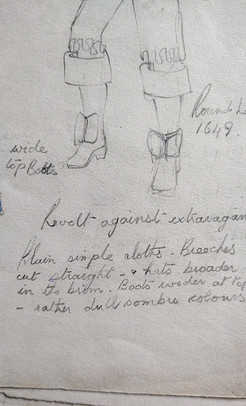 Round
1649.
wide
top Boots
Revolt against extravagan
Plain simple cloths - Breeches
cut straight - & hats broader
in the brim. Boots wider at top
- rather dull sombre colours